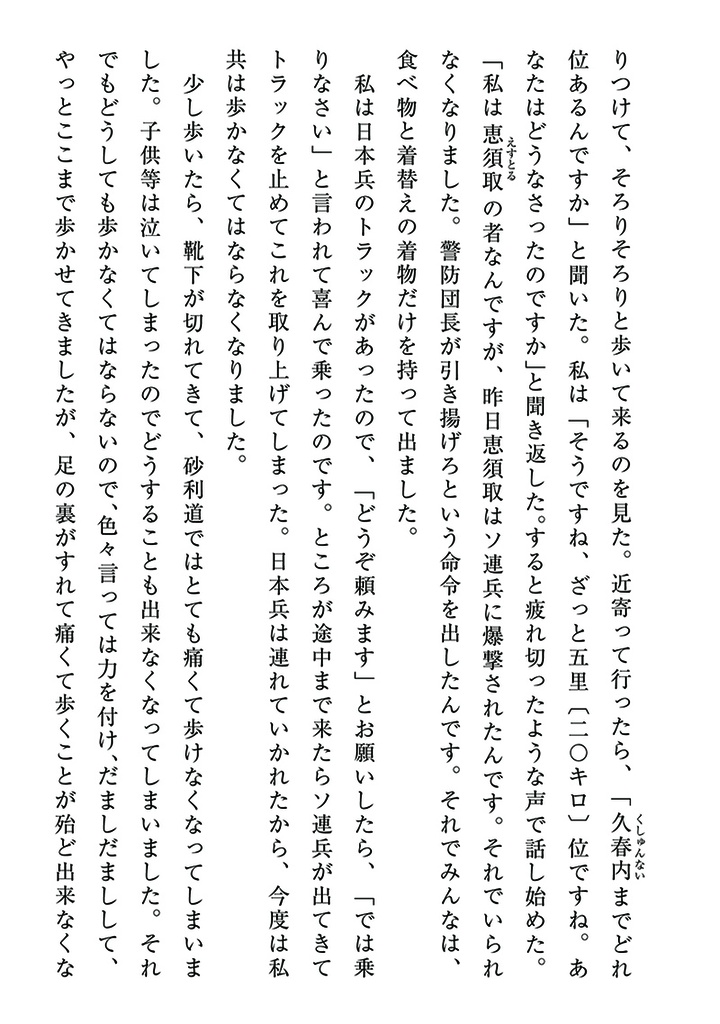 りつけて、そろりそろりと歩いて来るのを見た。近寄って行ったら、「久春内までどれ
位あるんですか」と聞いた。私は「そうですね、ざっと五里〔二〇キロ〕位ですね。あ
なたはどうなさったのですか」と聞き返した。すると疲れ切ったような声で話し始めた。
「私は恵須取の者なんですが、昨日恵須取はソ連兵に爆撃されたんです。それでいられ
なくなりました。警防団長が引き揚げろという命令を出したんです。それでみんなは、
食べ物と着替えの着物だけを持って出ました。
私は日本兵のトラックがあったので、「どうぞ頼みます」とお願いしたら、「では乗
りなさい」と言われて喜んで乗ったのです。ところが途中まで来たらソ連兵が出てきて
トラックを止めてこれを取り上げてしまった。日本兵は連れていかれたから、今度は私
共は歩かなくてはならなくなりました。
少し歩いたら、靴下が切れてきて、砂利道ではとても痛くて歩けなくなってしまいま
した。子供等は泣いてしまったのでどうすることも出来なくなってしまいました。それ
でもどうしても歩かなくてはならないので、色々言っては力を付け、だましだましして、
やっとここまで歩かせてきましたが、足の裏がすれて痛くて歩くことが殆ど出来なくな
くしゅんない
えすとる